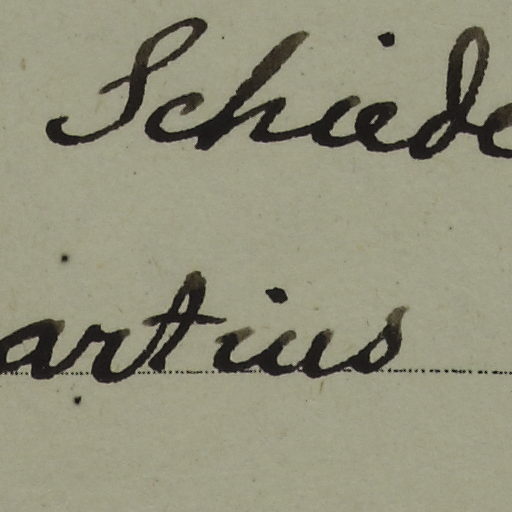 Schiede
artius